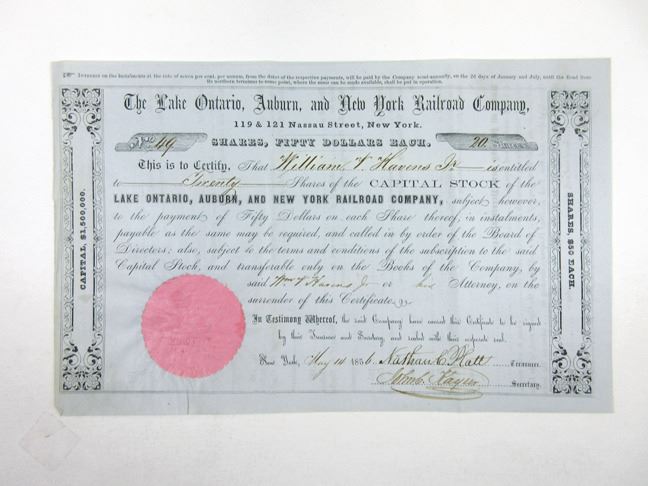 Interest on the Instalments at the rate of seven per cent. per annum, from the dates of the respective payments, will be paid by the Company semi-annually, on the 2d days of January and July, until the Road from
its northern terminus to some point, where the same can be made available, shall be put in operation.
The Lake Ontario, Auburn, and New York Railroad Company,
119 & 121 Nassau Street, New York.
No. 49 SHARES, FIFTY DOLLARS EACH. 20 Shares
This is to Certify, That William F. Havens Jr is entitled
to Twenty Shares of the CAPITAL STOCK of the
LAKE ONTARIO, AUBURN, AND NEW YORK RAILROAD COMPANY, subject however,
to the payment of Fifty Dollars on each Share thereof, in instalments,
payable as the same may be required, and called in by order of the Board of
Directors: also, subject to the terms and conditions of the subscription to the said
Capital Stock, and transferable only on the Books of the Company, by
said Wm F Havens Jr or his Attorney, on the
surrender of this Certificate.
In Testimony Whereof, the said Company have caused this Certificate to be signed
by their Treasurer and Secretary, and sealed with their corporate seal.
New York, May 14 1856 Nathan C. Platt Treasurer.
Secretary.
CAPITAL, $1,500,000.
SHARES, $50 EACH.